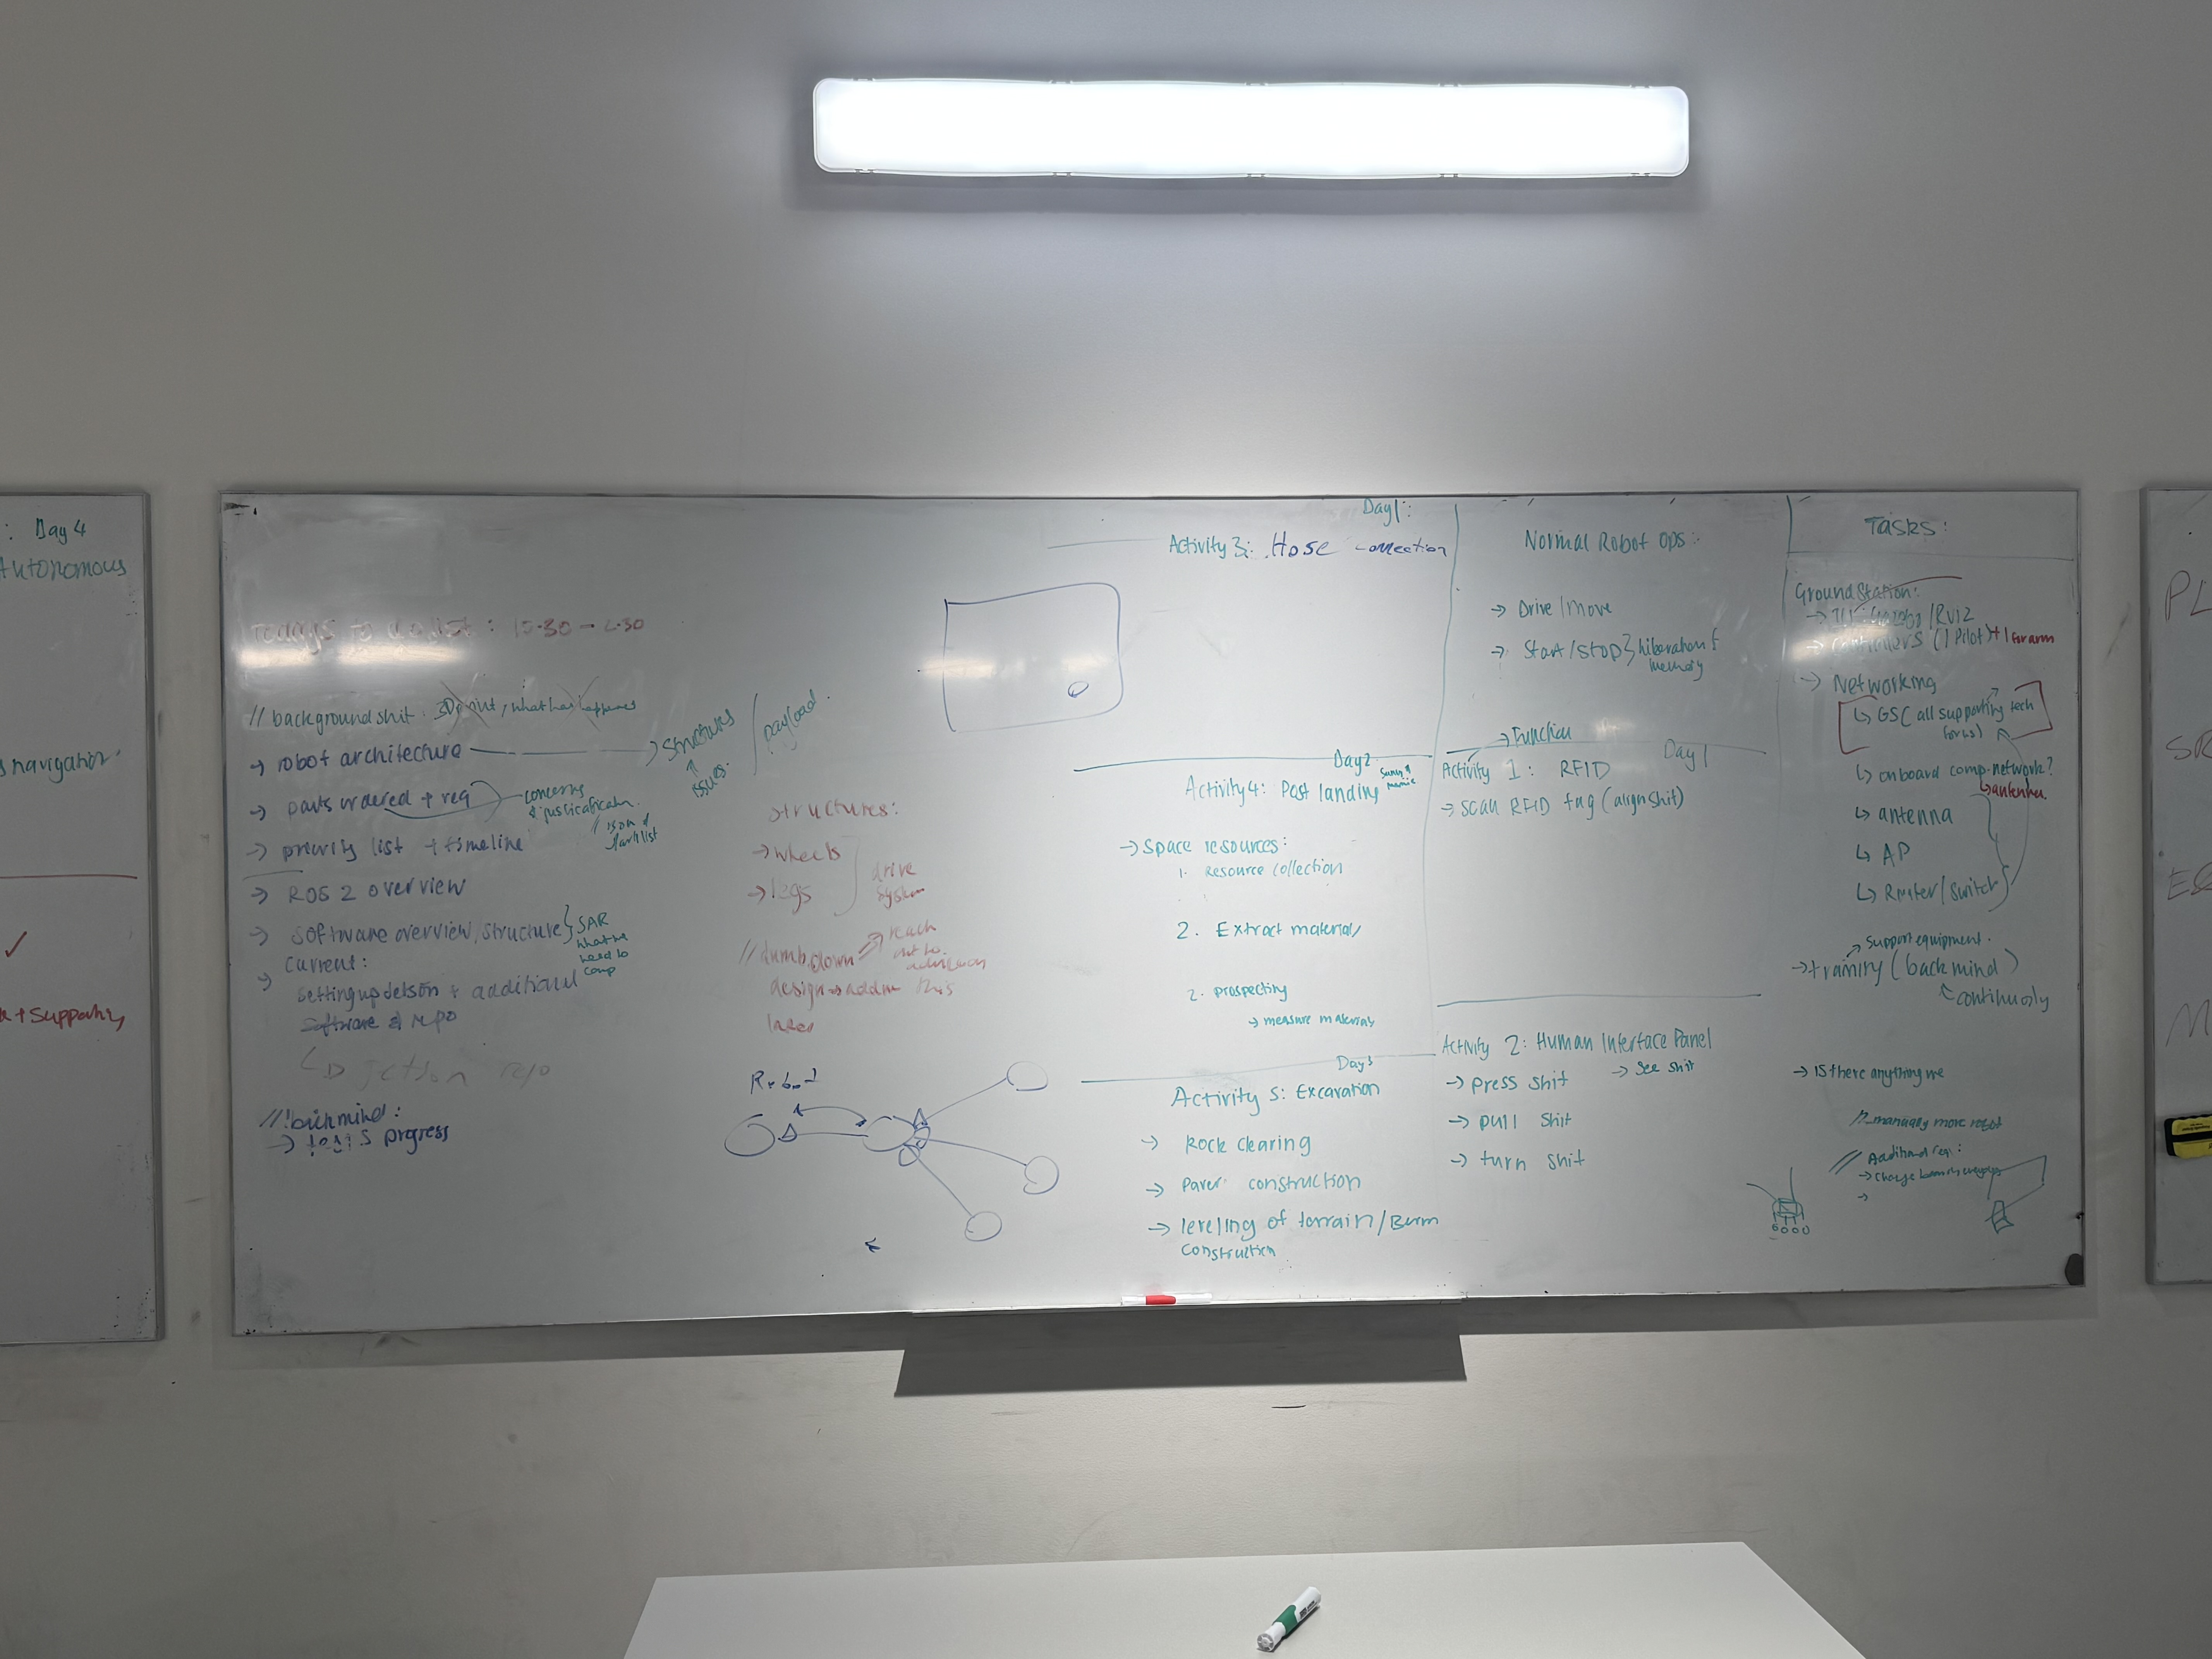 : Day 4
Autonomous
s navigation
✓
+ Supporting
Todays to do list : 15:30 –
// background shit : 3D print, what has happened
→ robot architecture → structures / payload.
↑
issues.
→ parts ordered + req
concerns
+ justification
→ priority list + timeline
→ ROS 2 overview
→ Software overview/structure } SAR
what we
need to
comp
→ Current:
setting up Jetson + additional
software & repo
↳ jetson repo
//!back mind:
→ progress
structures:
→ wheels
→ legs
drive
system
// dumb down → reach
out to
design → add this
later
Robot
Day 1:
Activity 3: Hose connection
Day 2
Activity 4: Post landing
→ Space resources:
1. Resource collection
2. Extract material
2. prospecting
→ measure materials
Day 3
Activity 5: Excavation
→ Rock clearing
→ Paver construction
→ leveling of terrain/Berm
construction
Normal Robot Ops:
→ Drive/Move
→ Start/Stop } hibernation &
memory
→ Function
Day 1
Activity 1: RFID
→ scan RFID tag (align shit)
Activity 2: Human Interface Panel
→ press shit → see shit
→ pull shit
→ turn shit
Tasks:
Ground Station:
→ /RViz
→ controllers (1 Pilot) + 1 for arm
→ Networking
↳ GS (all supporting tech
↳ onboard comp. network?
↳ antenna.
↳ antenna
↳ AP
↳ Router/switch
→ support equipment.
→ training (back mind)
continuously
→ IS there anything we
// manually move robot
// Additional req:
→
PL
M